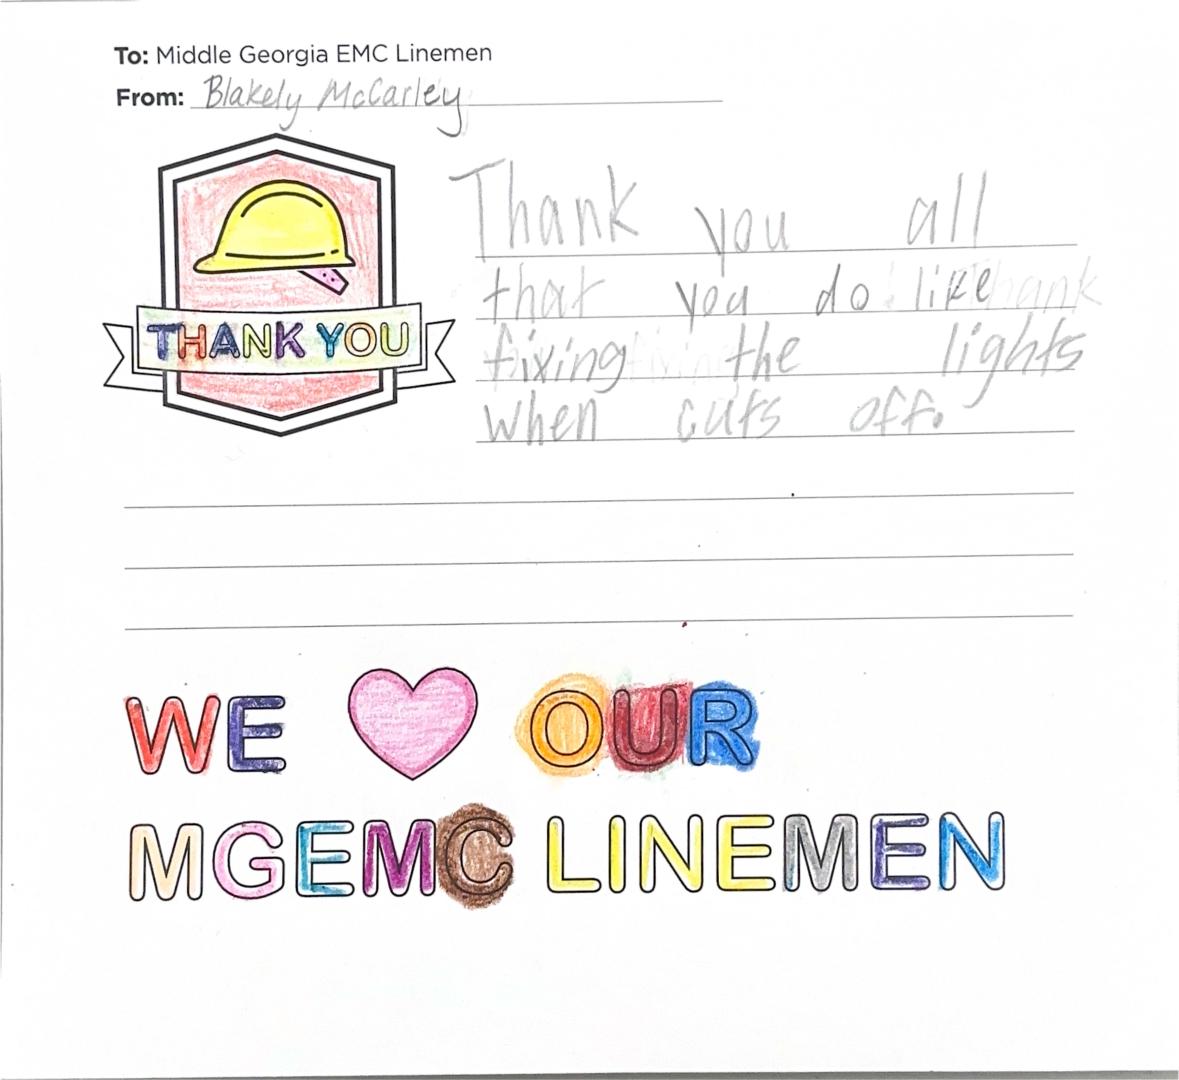 To: Middle Georgia EMC Linemen
From: Blakely McCarley
THANK YOU
Thank you all
that you do like
fixing the lights
when cuts off.
WE OUR
MGEMC LINEMEN